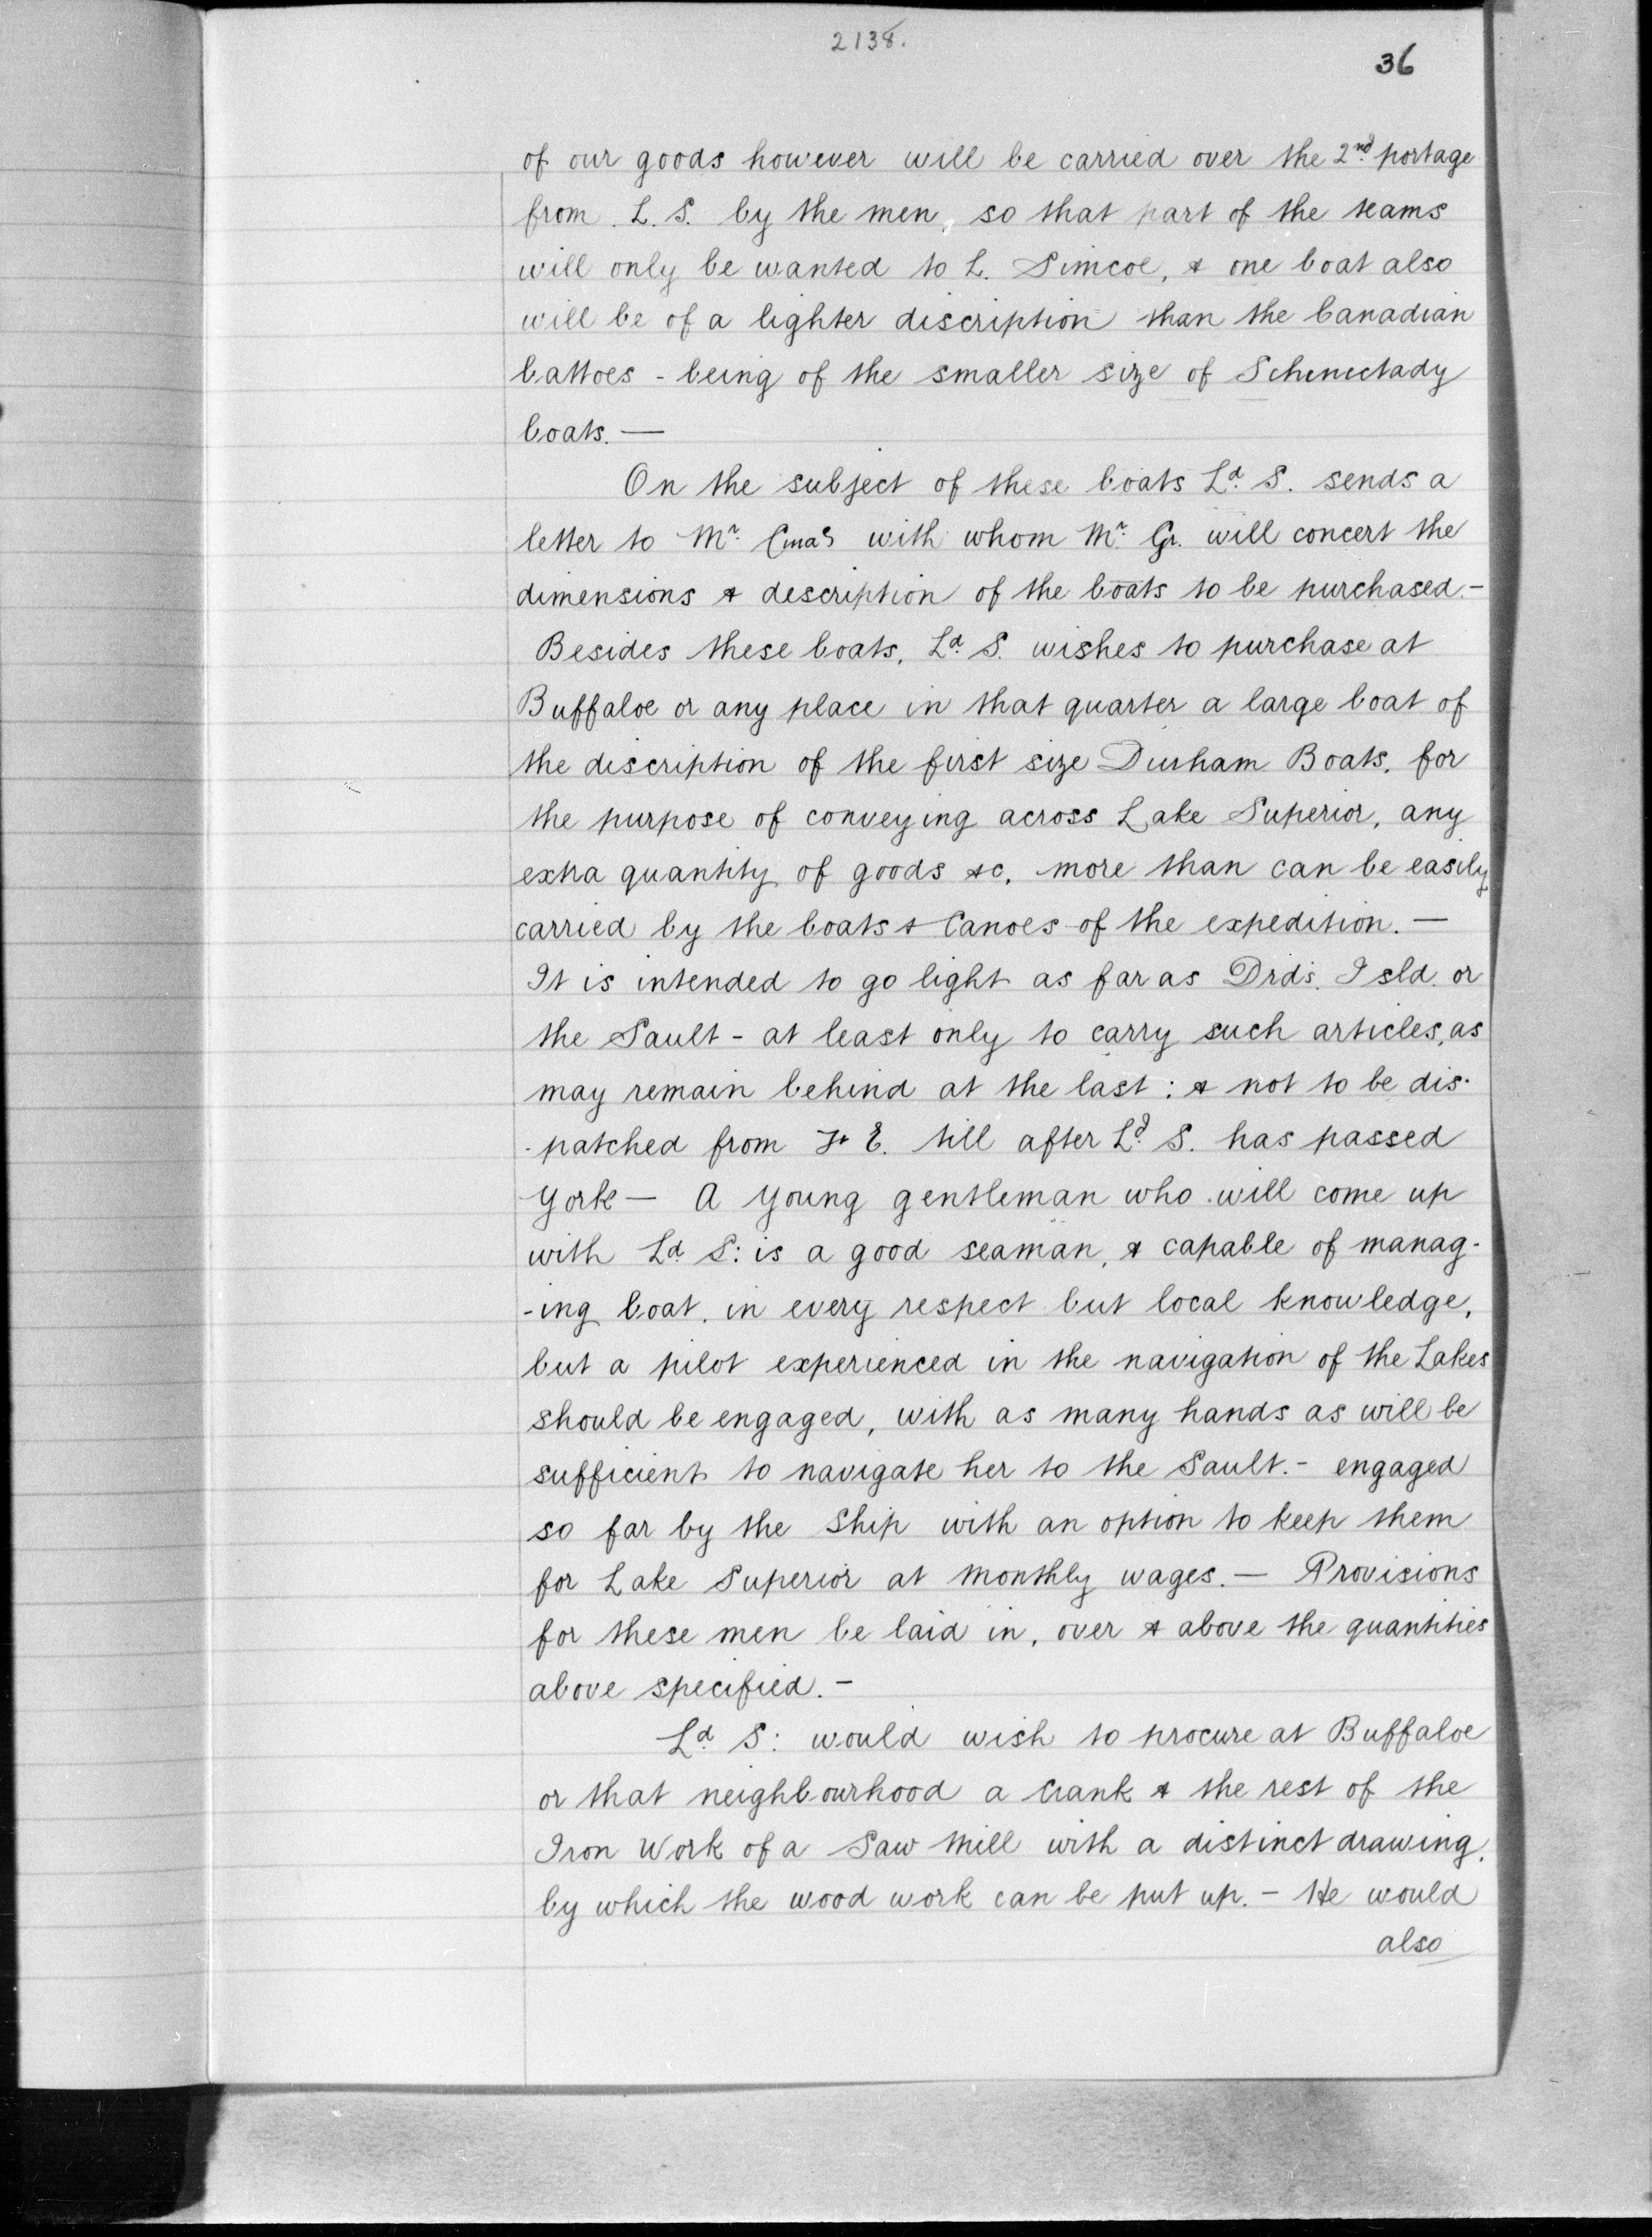 2138.
36
of our goods however will be carried over the 2nd portage
from L. S. by the men, so that part of the teams
will only be wanted to L. Simcoe, & one boat also
will be of a lighter discription than the Canadian
battoes - being of the smaller size of Schenectady
boats. —
On the subject of these boats Ld. S. sends a
letter to Mr. with whom Mr. Gr. will concert the
dimensions & description of the boats to be purchased.-
Besides these boats, Ld. S. wishes to purchase at
Buffaloe or any place in that quarter a large boat of
the discription of the first size Durham Boats, for
the purpose of conveying across Lake Superior, any
extra quantity of goods &c, more than can be easily
carried by the boats & Canoes of the expedition. —
It is intended to go light as far as Drds. Isld. or
the Sault - at least only to carry such articles, as
may remain behind at the last : & not to be dis-
-patched from Ft E. till after Ld. S. has passed
York — A young gentleman who will come up
with Ld. S: is a good seaman, & capable of manag-
-ing boat, in every respect but local knowledge,
but a pilot experienced in the navigation of the Lakes
should be engaged, with as many hands as will be
sufficient to navigate her to the Sault.- engaged
so far by the Ship with an option to keep them
for Lake Superior at monthly wages. — Provisions
for these men be laid in, over & above the quantities
above specified. -
Ld. S: would wish to procure at Buffaloe
or that neighbourhood a Crank & the rest of the
Iron Work of a Saw Mill with a distinct drawing,
by which the wood work can be put up. - He would
also